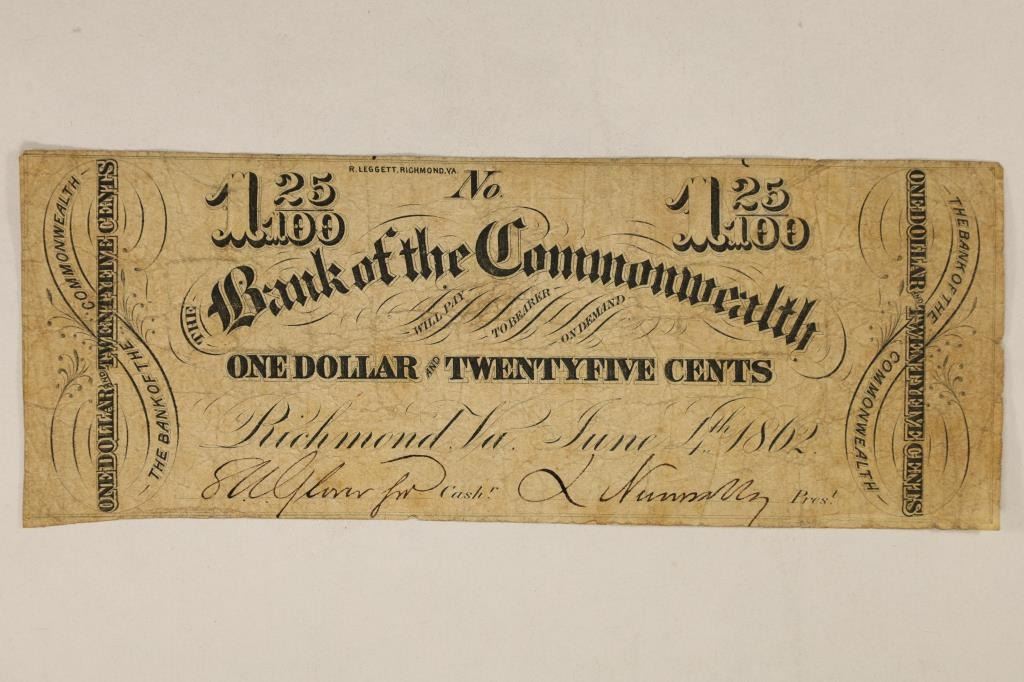 R. LEGGETT, RICHMOND, VA.
1 25/100 No. 1 25/100
THE Bank of the Commonwealth
WILL PAY TO BEARER ON DEMAND
ONE DOLLAR AND TWENTYFIVE CENTS
Richmond, Va. June 4th 1862.
Cashr. Prest.
ONE DOLLAR AND TWENTYFIVE CENTS
THE BANK OF THE COMMONWEALTH
ONE DOLLAR AND TWENTYFIVE CENTS
THE BANK OF THE COMMONWEALTH